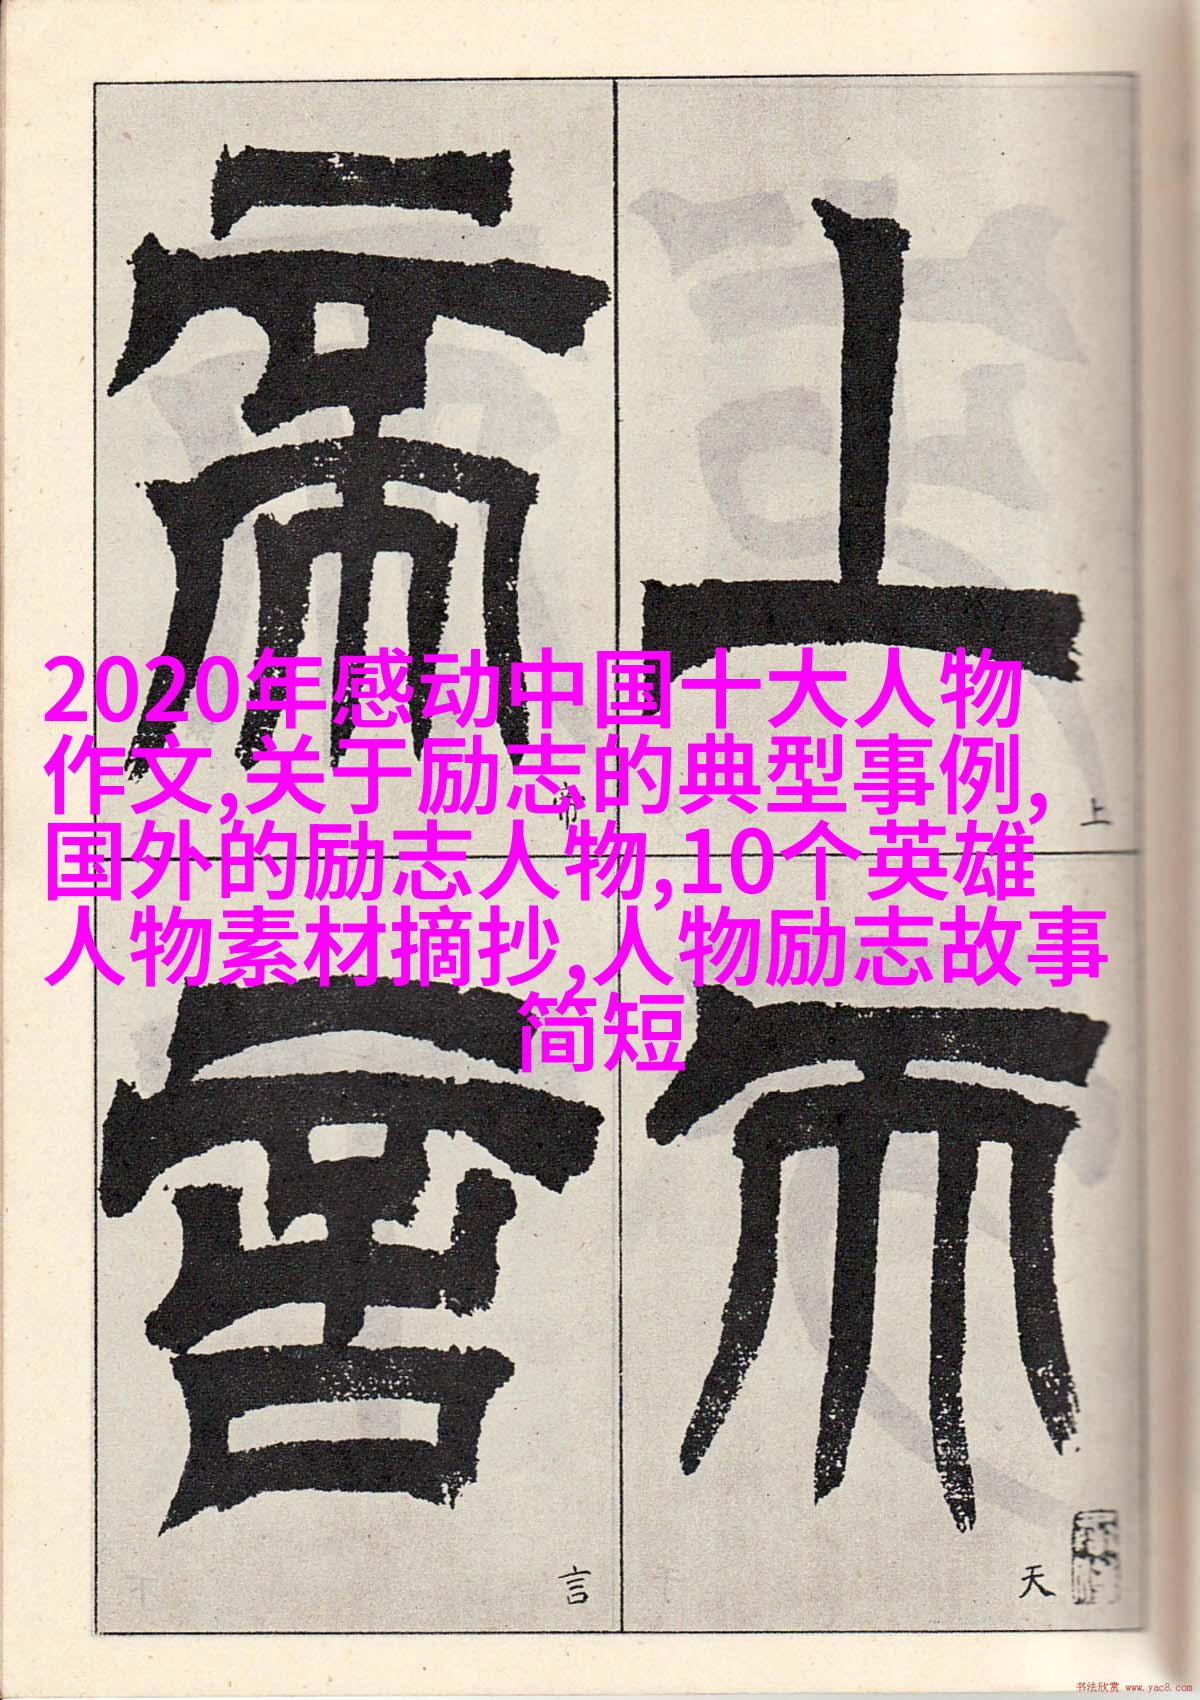 上
天
帝
言
2020年感动中国十大人物
作文,关于励志的典型事例,
国外的励志人物,10个英雄
人物素材摘抄,人物励志故事
简短
上
帝
天
言
书法欣赏 www.yac8.com